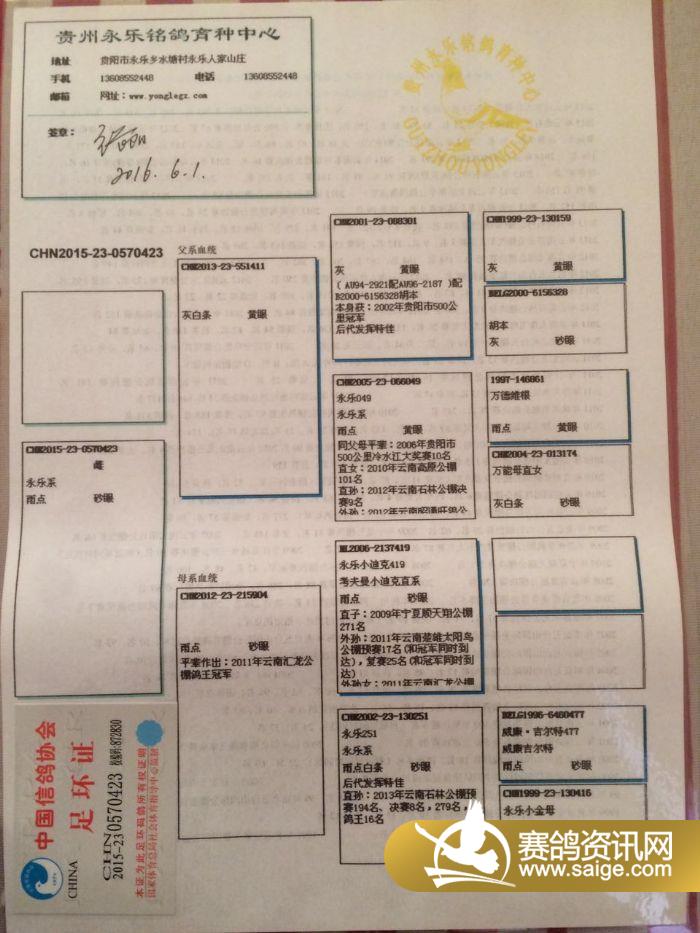 贵州永乐铭鸽育种中心
地址 贵阳市永乐乡水塘村永乐人家山庄
手机 13608552448 电话 13608552448
邮箱 网址：www.yonglegz.com
签章：
2016. 6. 1.
贵州永乐铭鸽育种中心
GUIZHOUYONGLEY
CHN2015-23-0570423
CHN2015-23-0570423
雌
永乐系
雨点 砂眼
父系血统
CHN2013-23-551411
灰白条 黄眼
母系血统
CHN2012-23-215904
雨点 砂眼
平辈作出：2011年云南汇龙公
棚鸽王冠军
CHN2001-23-088301
灰 黄眼
( AU94-2921配AU96-2187 )配
B2000-6156328胡本
本身获：2002年贵阳市500公
里冠军
后代发挥特佳
CHN2005-23-066049
永乐049
永乐系
雨点 黄眼
同父母平辈：2006年贵阳市
500公里冷水江大奖赛10名
直女：2010年云南高原公棚
101名
直孙：2012年云南石林公棚决
赛9名
外孙：2012年云南昭通旺鸽公
NL2006-2137419
永乐小迪克419
考夫曼小迪克直系
雨点 砂眼
直子：2009年宁夏顺天翔公棚
271名
外孙：2011年云南楚雄太阳鸟
公棚预赛17名(和冠军同时到
达)，复赛25名(和冠军同时到
达)
外孙女：2011年云南汇龙公棚
CHN2002-23-130251
永乐251
永乐系
雨点白条 砂眼
后代发挥特佳
直孙：2013年云南石林公棚预
赛194名、决赛8名，279名，
鸽王16名
CHN1999-23-130159
灰 黄眼
BELG2000-6156328
胡本
灰 砂眼
1997-146861
万德维根
雨点 黄眼
CHN2004-23-013174
万能母直女
灰白条 砂眼
BELG1996-6460477
威廉·吉尔特477
威廉吉尔特
雨点 砂眼
CHN1999-23-130416
永乐小金母
中国信鸽协会
足环证
CHINA
CHN
2015-23 0570423
872830
本证为此足环信鸽所有权证明
国家体育总局社会体育指导中心监制
赛鸽资讯网
www.saige.com